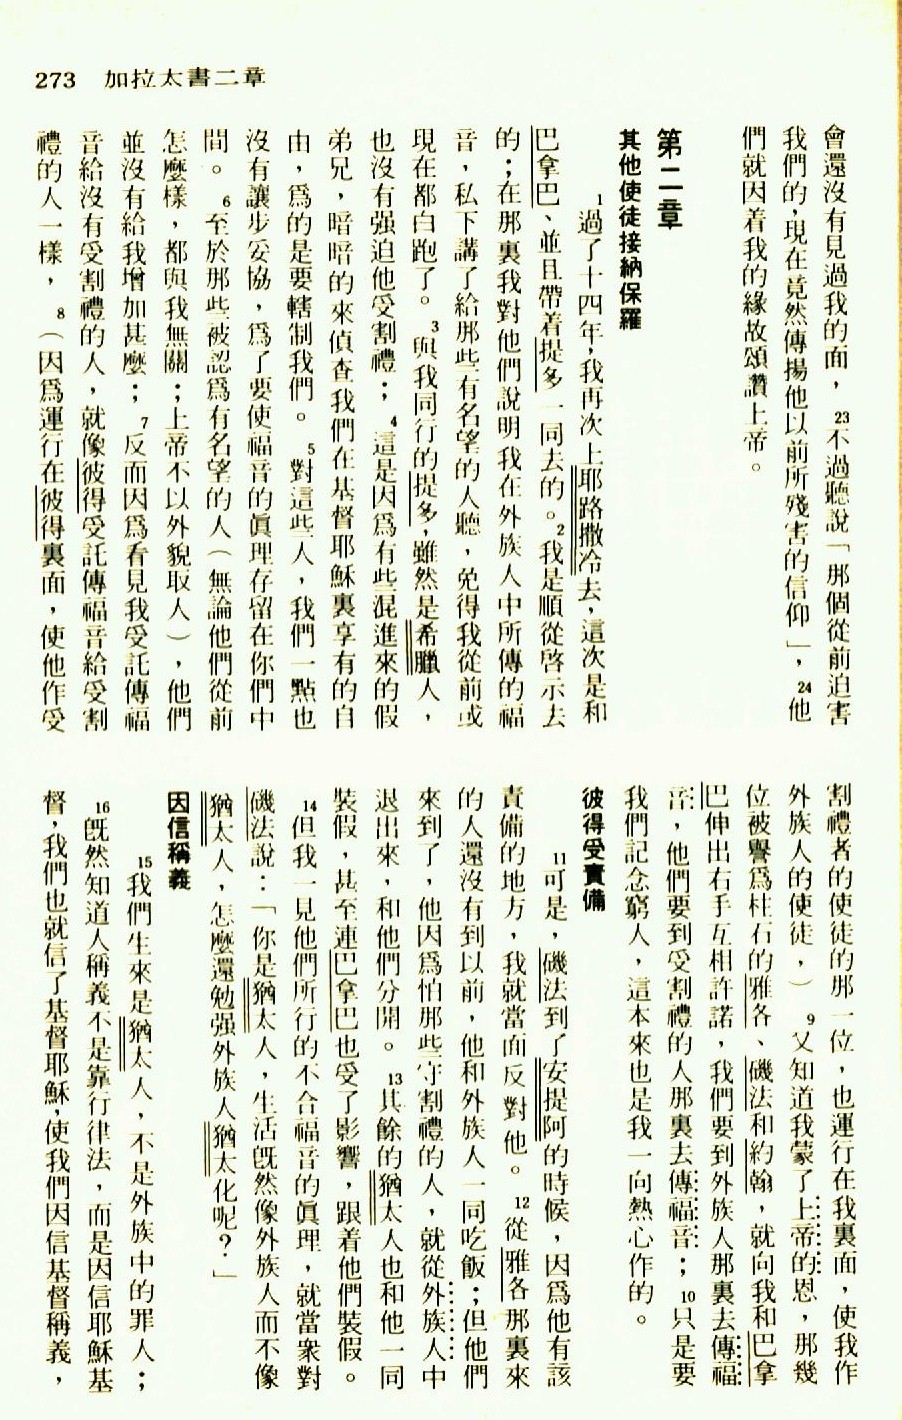 273 加拉太書二章
會還沒有見過我的面， 23不過聽說「那個從前迫害
我們的，現在竟然傳揚他以前所殘害的信仰」， 24他
們就因着我的緣故頌讚上帝。
第二章
其他使徒接納保羅
1過了十四年，我再次上耶路撒冷去，這次是和
巴拿巴、並且帶着提多一同去的。2我是順從啓示去
的；在那裏我對他們說明我在外族人中所傳的福
音，私下講了給那些有名望的人聽，免得我從前或
現在都白跑了。 3與我同行的提多，雖然是希臘人，
也沒有强迫他受割禮； 4這是因爲有些混進來的假
弟兄，暗暗的來偵查我們在基督耶穌裏享有的自
由，爲的是要轄制我們。 5對這些人，我們一點也
沒有讓步妥協，爲了要使福音的眞理存留在你們中
間。 6至於那些被認爲有名望的人（無論他們從前
怎麼樣，都與我無關；上帝不以外貌取人），他們
並沒有給我增加甚麼； 7反而因爲看見我受託傳福
音給沒有受割禮的人，就像彼得受託傳福音給受割
禮的人一樣， 8（因爲運行在彼得裏面，使他作受
割禮者的使徒的那一位，也運行在我裏面，使我作
外族人的使徒，） 9又知道我蒙了上帝的恩，那幾
位被譽爲柱石的雅各、磯法和約翰，就向我和巴拿
巴伸出右手互相許諾，我們要到外族人那裏去傳福
音，他們要到受割禮的人那裏去傳福音；10只是要
我們記念窮人，這本來也是我一向熱心作的。
彼得受責備
11可是，磯法到了安提阿的時候，因爲他有該
責備的地方，我就當面反對他。 12從雅各那裏來
的人還沒有到以前，他和外族人一同吃飯；但他們
來到了，他因爲怕那些守割禮的人，就從外族人中
退出來，和他們分開。 13其餘的猶太人也和他一同
裝假，甚至連巴拿巴也受了影響，跟着他們裝假。
14但我一見他們所行的不合福音的眞理，就當衆對
磯法說：「你是猶太人，生活旣然像外族人而不像
猶太人，怎麼還勉强外族人猶太化呢？」
因信稱義
15我們生來是猶太人，不是外族中的罪人；
16旣然知道人稱義不是靠行律法，而是因信耶穌基
督，我們也就信了基督耶穌，使我們因信基督稱義，